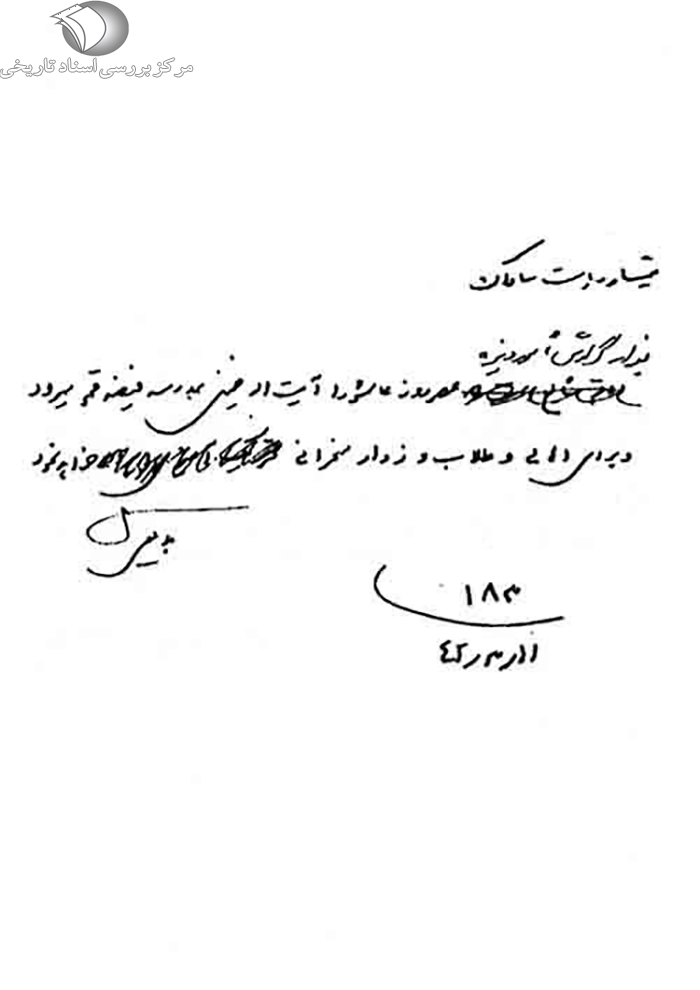 مرکز بررسی اسناد تاریخی
تیمسار ریاست ساواک
گزارش
عصر روز عاشورا آیت اله خمینی بمدرسه فیضیه قم میرود
و برای اهالی و طلاب و زوار سخنرانی خواهد نمود
۱۸۳